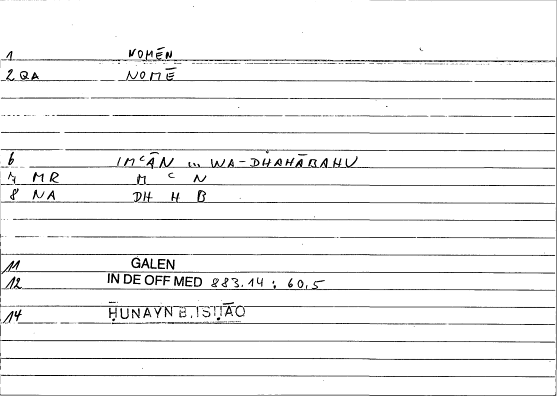 1 NOMĒN
2 QA NOMĒ
6 IMʿĀN ... WA-DHAHĀBAHU
7 MR M ʿ N
8 NA DH H B
11 GALEN
12 IN DE OFF MED 883.14 ; 60,5
14 ḤUNAYN B. ISḤĀQ